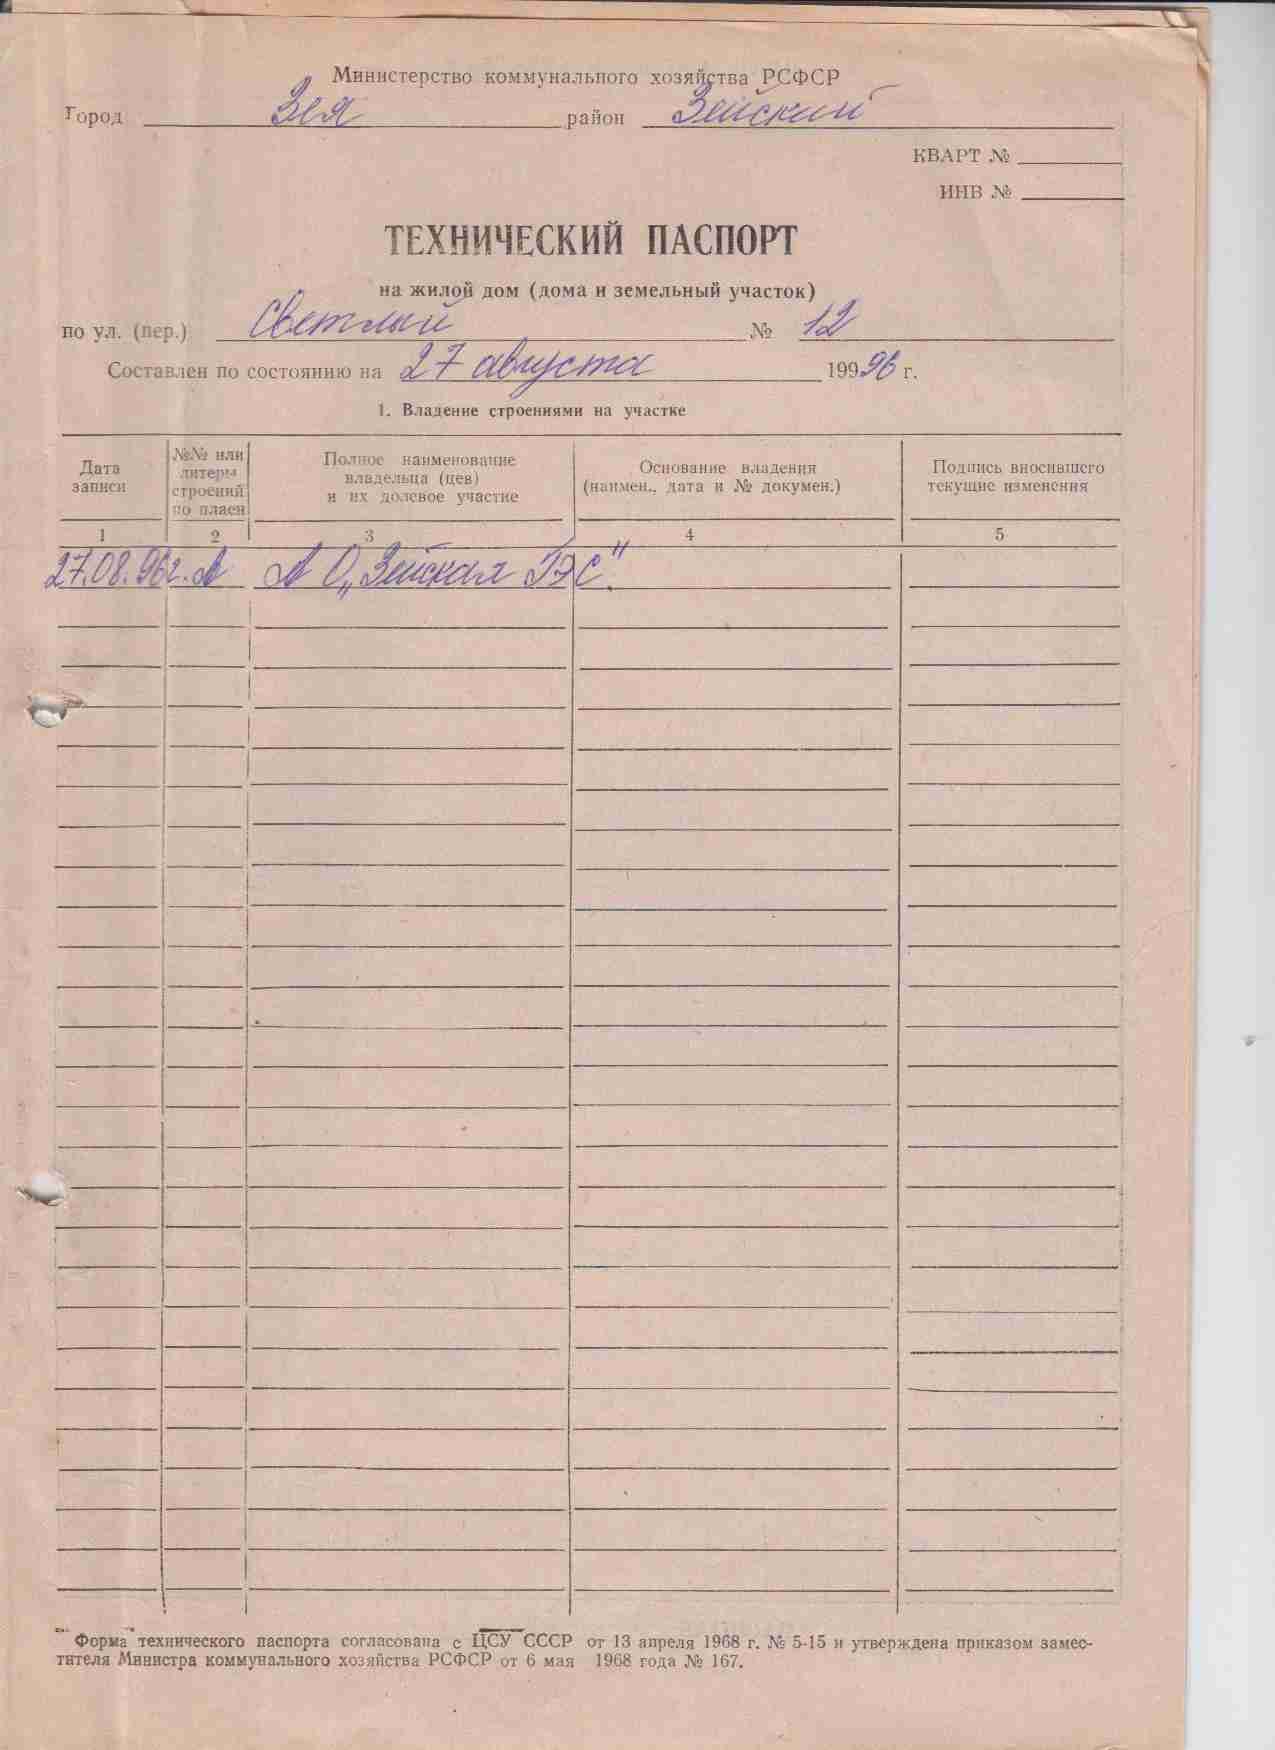 Министерство коммунального хозяйства РСФСР
Город Зея район Зейский
КВАРТ №
ИНВ №
ТЕХНИЧЕСКИЙ ПАСПОРТ
на жилой дом (дома и земельный участок)
по ул. (пер.) Светлый № 12
Составлен по состоянию на 27 августа 199 96 г.
1. Владение строениями на участке
Дата записи
№№ или литеры строений по плаен
Полное наименование владельца (цев) и их долевое участие
Основание владения (наимен., дата и № докумен.)
Подпись вносившего текущие изменения
1 2 3 4 5
27.08.96г. А АО „Зейская ГЭС"
Форма технического паспорта согласована с ЦСУ СССР от 13 апреля 1968 г. № 5-15 и утверждена приказом замес-
тителя Министра коммунального хозяйства РСФСР от 6 мая 1968 года № 167.